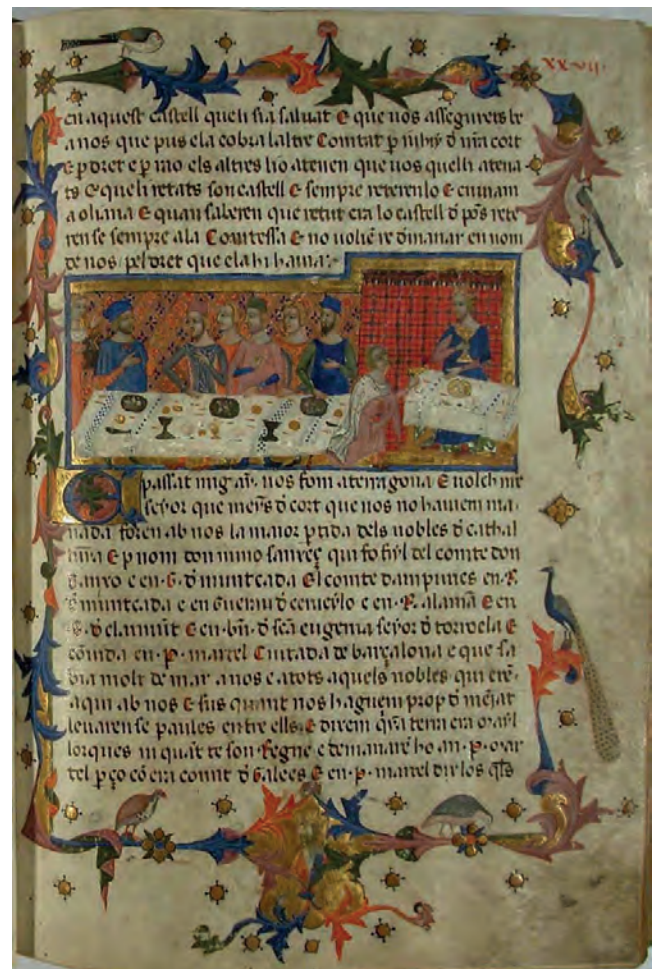 xxvij.
en aquest castell queli sia saluat E que nos assegurets be
a nos que pus ela cobra laltre Comtat p iuhij d nra cort
E p dret e p rao els altres lio atenen que uos quelli atena
ts E queli retats son castell E sempre reterenlo E enuiam
a oliana E quan saberen que retut era lo castell d pos rete
ren se sempre ala Comtessa E no uolie re dmanar en nom
de nos pel dret que ela hi hauia
passat mig ay. nos fom aterragona E uolch nre
seyor que meys d cort que nos no hauiem ma
nada foren ab nos la maior ptida dels nobles d cathal
E p nom don nuno sanxeç qui fo fiyl del comte don
sanxo e en .G. d muntcada El comte dampuries en .R.
d muntcada e en Guerau d ceruerlo e en .R. alama E en
.G. d claramut E en .bn. d sca eugenia seyor d torroela E
couida en .p. martel Ciutada de barçalona e que sa
bia molt de mar a nos e a tots aquels nobles qui ere
aqui ab nos E sus quant nos haguem prop d mejat
leuaren se paraules entre ells. E dixem qna terra era mayl
lorques ni quat te son Regne e demanare ho an .p. mar
tel p ço co era comit d Galees E en .p. martel dix los qls